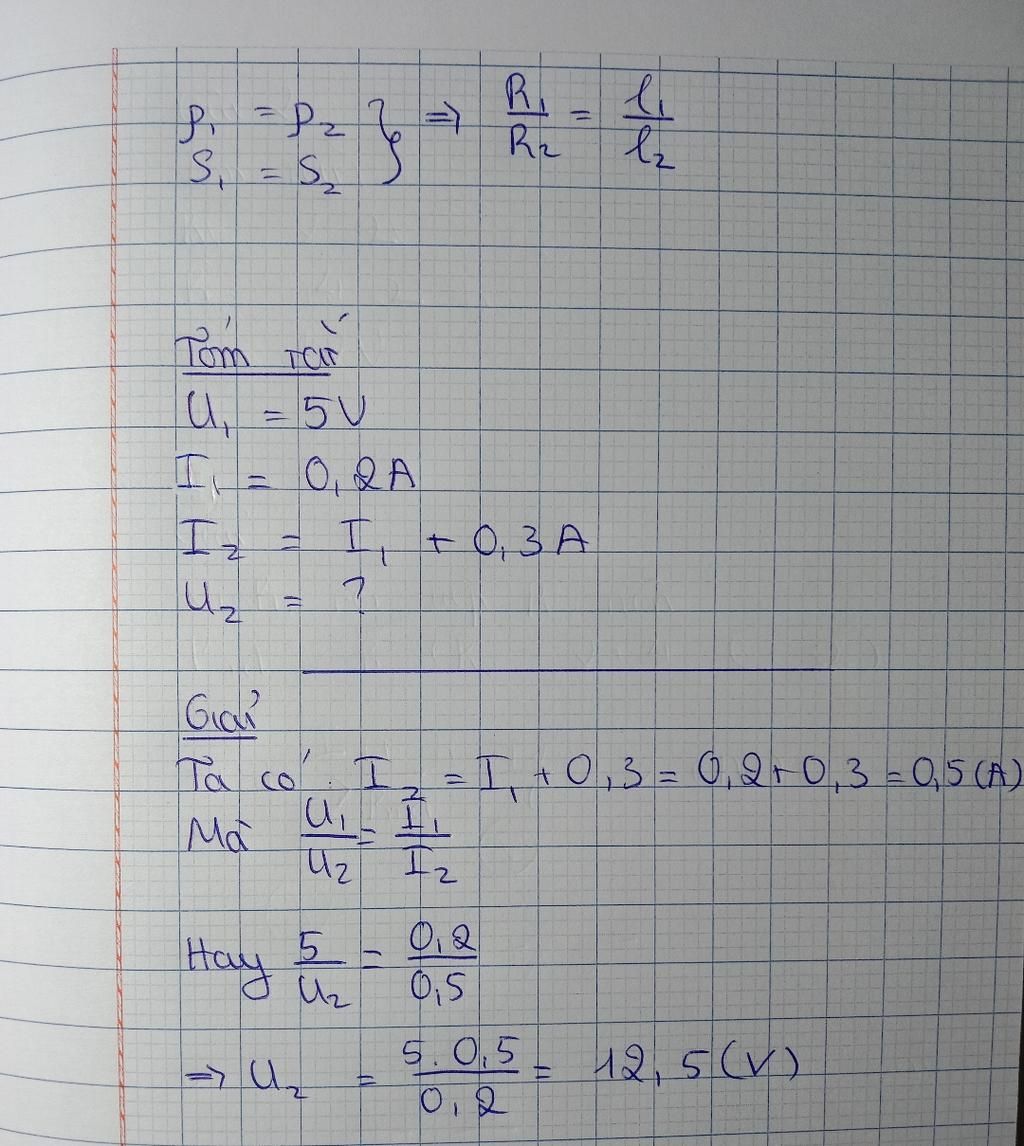 ρ₁ = ρ₂ } ⇒ R₁/R₂ = l₁/l₂
S₁ = S₂
Tóm tắt
U₁ = 5V
I₁ = 0,2A
I₂ = I₁ + 0,3A
U₂ = ?
Giải
Ta có: I₂ = I₁ + 0,3 = 0,2 + 0,3 = 0,5 (A)
Mà U₁/U₂ = I₁/I₂
Hay 5/U₂ = 0,2/0,5
⇒ U₂ = 5.0,5/0,2 = 12,5 (V)